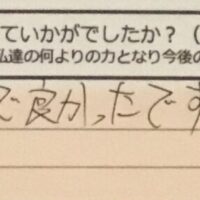 ていかがでしたか？（
私達の何よりの力となり今後の
で良かったです